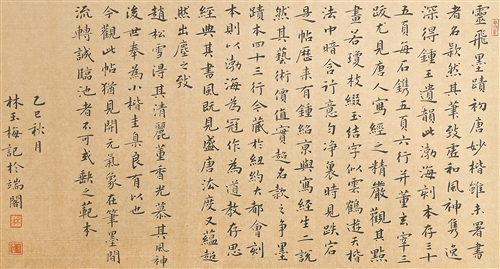 靈飛墨蹟卿唐妙楷雖未署書
者名款然其筆致虛和風神雋逸
深得鍾王遺韻此渤海刻本存三十
五頁每石鐫五頁六行并董玄宰三
跋尤見唐人寫經之精嚴觀其點
畫若瓊枝綴玉結字似雲鶴遊天楷
法中暗合行意勻淨裏時見跌宕
是帖歷來有鍾紹京與寫經生二說
然其藝術價值實超名款之爭墨
蹟本四十三行今藏於紐約大都會刻
本則以渤海為冠作為道教存思
經典其書風既見盛唐法度又蘊超
然出塵之致
趙松雪得其清麗董香光慕其風神
後世奉為小楷圭臬良有以也
今觀此帖猶見開元氣象在筆墨間
流轉誠臨池者不可或缺之範本
乙巳秋月
林玉梅記於端閣